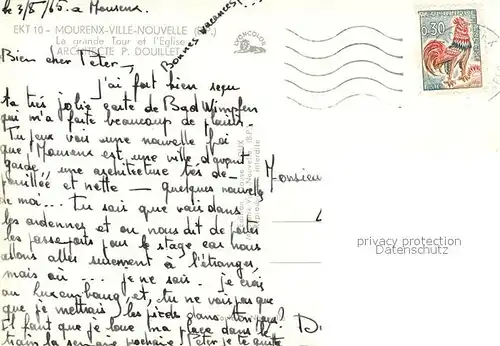 le 3/8/65. a Mourenx
Bonnes vacances!
EKT 10 - MOURENX-VILLE-NOUVELLE (B.-P.)
La grande Tour et l'Eglise
ARCHITECTE P. DOUILLET
LYONCOLOR
0,30
POSTES
Bien cher Peter -
J'ai fort bien reçu
ta très jolie carte de Bad Wimpfen
qui m'a faite beaucoup de plaisir -
Tu peux vois une nouvelle foi
que Mourenx est une ville d'avant
garde, une architecture très dé-
pouillée et nette - quelques nouvelles
de moi... Tu sais que vais dans
les ardennes et on nous dit de porter
les passeports pour le stage car nous
allons allés surement à l'étranger,
mais où .... je ne sais. Je crois
au Luxembourg et, tu ne vois pas que
que je mettrais les pieds dans ton pays!
Il faut que je loue ma place dans le
train la semaine prochaine Peter je te quitte
interdite
Monsieur
D
privacy protection
Datenschutz